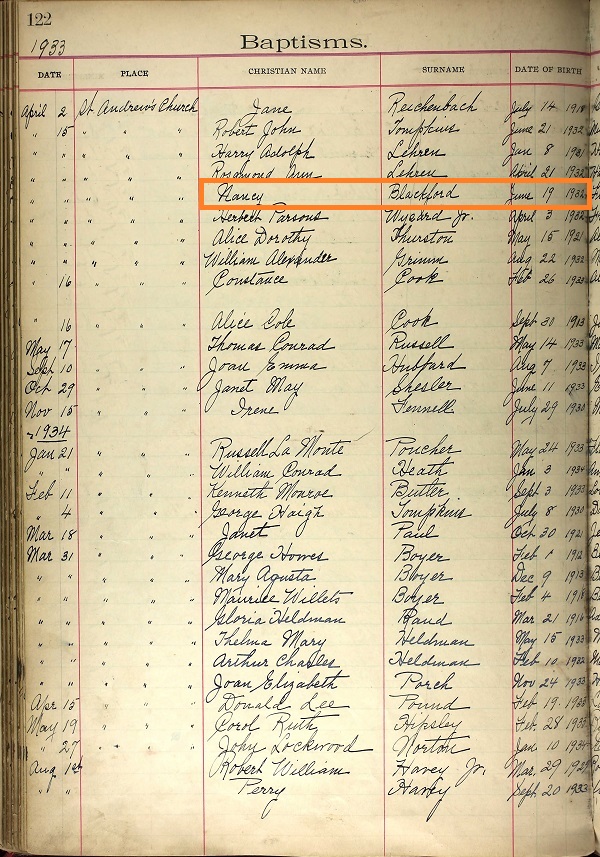 122
1933
Baptisms.
DATE PLACE CHRISTIAN NAME SURNAME DATE OF BIRTH
April 2 St Andrew's Church Jane Reichenbach July 14 1918
" 15 " " Robert John Tompkins June 21 1932
" " " " Harry Adolph Lehren Jan 8 1931
" " " " Rosamond Ann Lehren April 21 1932
" " " " Nancy Blackford June 19 1932
" " " " Herbert Parsons Wygard Jr. April 3 1932
" " " " Alice Dorothy Thurston May 15 1921
" " " " William Alexander Grimm Aug 22 1932
" 16 " " Constance Cook Feb 26 1933
" 16 " " Alice Cole Cook Sept 30 1913
May 17 " " Thomas Conrad Russell May 14 1933
Sept 10 " " Joan Emma Hubbard Aug 7 1933
Oct 29 " " Janet May Shesler June 11 1933
Nov 15 " " Irene Fennell July 29 1930
1934
Jan 21 " " Russell La Monte Poucher May 24 1933
" " " " William Conrad Heath Jan 3 1934
Feb 11 " " Kenneth Monroe Butler Sept 3 1933
" 4 " " George Haigh Tompkins July 8 1930
Mar 18 " " Janet Paul Oct 30 1921
Mar 31 " " George Howes Boyer Feb 1 1912
" " " " Mary Agusta Boyer Dec 9 1913
" " " " Maurice Willets Boyer Feb 4 1918
" " " " Gloria Heldman Raud Mar 21 1916
" " " " Thelma Mary Heldman May 15 1933
" " " " Arthur Charles Heldman Feb 10 1922
" " " " Joan Elizabeth Porch Nov 24 1933
Apr 15 " " Donald Lee Pound Feb 19 1933
May 19 " " Corol Ruth Hipsley Feb 28
" 27 " " John Lockwood Norton Jan 10 1934
Aug 1st Robert William Harvey Jr. Mar. 29
Perry Harvey Sept 20 1933